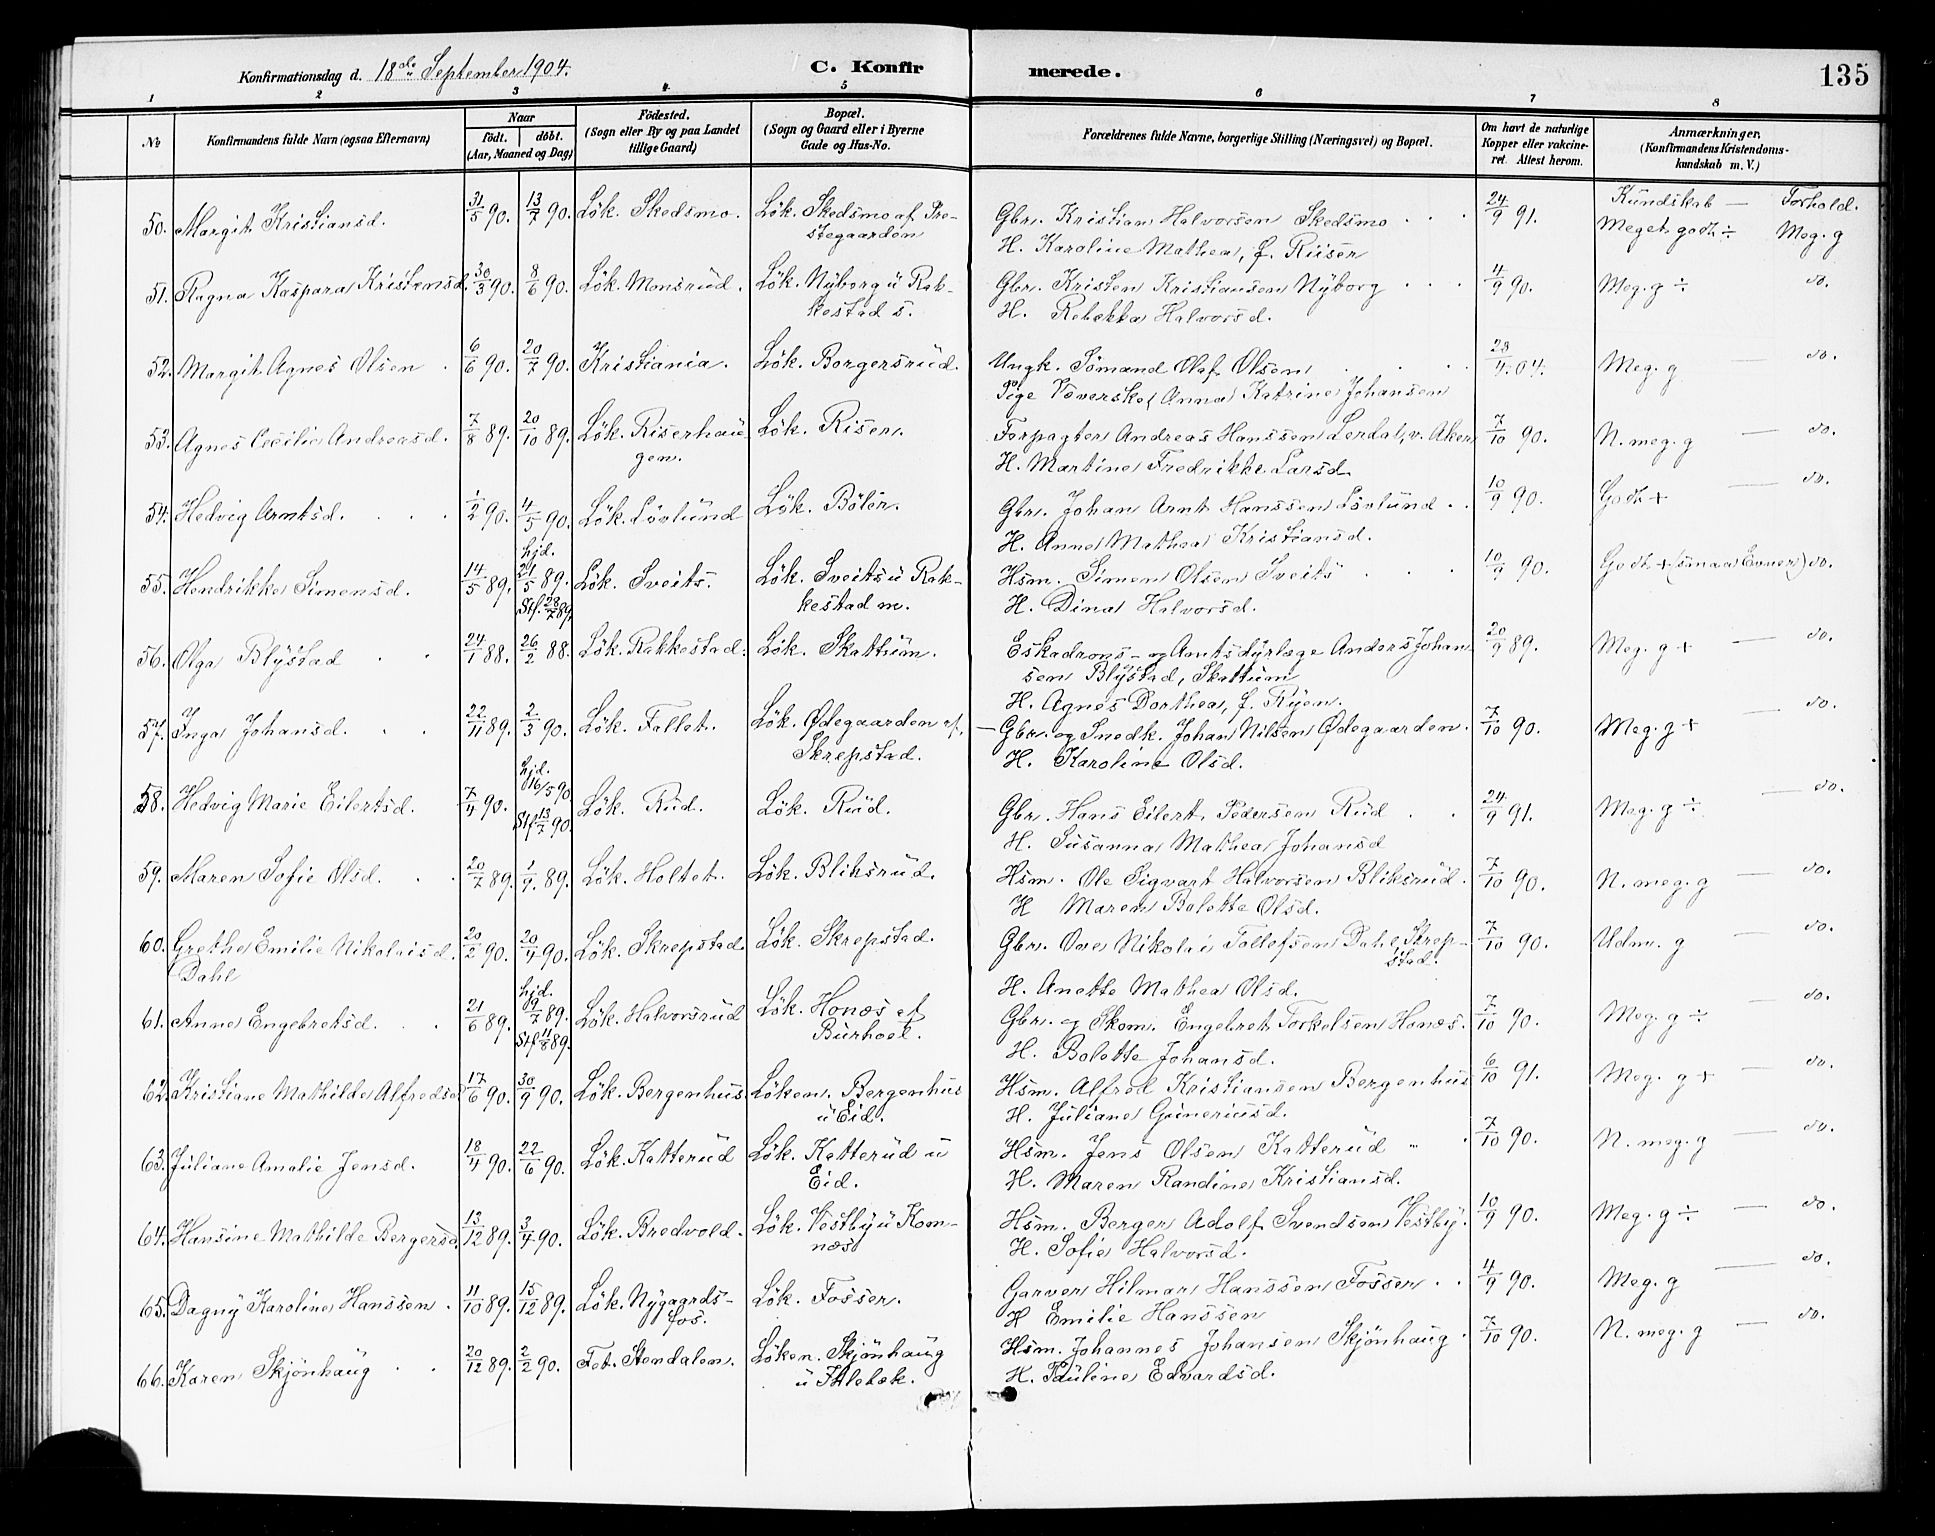 Konfirmationsdag d. 18de September 1904. C. Konfirmerede. 135
1 2 3 4 5 6 7 8
No Konfirmandens fulde Navn (ogsaa Efternavn) Naar født. døbt. (Aar, Maaned og Dag) Fødested. (Sogn eller By og paa Landet tillige Gaard) Bopæl. (Sogn og Gaard eller i Byerne Gade og Hus-No. Forældrenes fulde Navne, borgerlige Stilling (Næringsvei) og Bopæl. Om havt de naturlige Kopper eller vakcineret. Attest herom. Anmærkninger. (Konfirmandens Kristendomskundskab m. V.)
Kundskab — Forhold.
50. Margit Kristiansd. 31/5 90. 13/7 90. Løk. Skedsmo. Løk. Skedsmo af Prestegaarden Gbr. Kristian Halvorsen Skedsmo 24/9 91. Meget godt ÷ Meg. g
H. Karoline Mathea, f. Riiser
51. Ragna Kaspara Kristensd. 30/3 90. 8/6 90. Løk. Monsrud. Løk. Nyborg u Rakkestad s. Gbr. Kristen Kristiansen Nyborg 4/9 90. Meg. g ÷ do.
H. Rebekka Halvorsd.
52. Margit Agnes Olsen 6/6 90. 20/7 90. Kristiania. Løk. Borgersrud. Ungk. Sømand Olaf Olsen 28/4 04. Meg. g — do.
Pige Væverske Anna Katrine Johansen
53. Agnes Cecilie Andreasd. 7/8 89. 20/10 89. Løk. Riserhaugen. Løk. Riser. Forpagter Andreas Hanssen Lerdal, v. Aker 7/10 90. N. meg. g — do.
H. Martine Fredrikke Larsd.
54. Hedvig Arntsd. 1/2 90. 4/5 90. Løk. Løvlund Løk. Bøler. Gbr. Johan Arnt Hanssen Løvlund 10/9 90. Godt + — do.
H. Anne Mathea Kristiansd.
55. Hendrikke Simensd. 14/5 89. hjd. 21/5 89. Stf. 28/7 89. Løk. Sveits. Løk. Sveits u Rakkestad m. Hsm. Simen Olsen Sveits 10/9 90. Godt + (smaa Evner) do.
H. Dina Halvorsd.
56. Olga Blystad 24/1 88. 26/2 88. Løk. Rakkestad. Løk. Skattum. Eskadrons- og Amtsdyrlæge Anders Johansen Blystad, Skattum 20/9 89. Meg. g + — do.
H. Agnes Dorthea, f. Ryen.
57. Inga Johansd. 22/11 89. 2/3 90. Løk. Fallet. Løk. Ødegaarden af Skrepstad. Gbr. og Snedk. Johan Nilsen Ødegaarden. 7/10 90. Meg. g + — do.
H. Karoline Olsd.
58. Hedvig Marie Eilertsd. 7/4 90. hjd. 16/5 90 Stf. 13/7 90. Løk. Rud. Løk. Rud. Gbr. Hans Eilert Pedersen Rud 24/9 91. Meg. g ÷ — do.
H. Susanna Mathea Johansd
59. Maren Sofie Olsd. 20/7 89. 1/9 89. Løk. Holtet. Løk. Bliksrud. Hsm. Ole Sigvart Halvorsen Bliksrud. 7/10 90. N. meg. g — do.
H Maren Bolette Olsd.
60. Grethe Emilie Nikolaisd. Dahl 20/2 90. 20/4 90. Løk. Skrepstad. Løk. Skrepstad. Gbr. Ove Nikolai Tollefsen Dahl, Skrepstad. 7/10 90. Udm. g — do.
H. Anette Mathea Olsd.
61. Anne Engebretsd. 21/6 89. hjd. 9/7 89. Stf. 11/8 89. Løk. Halvorsrud Løk. Honæs af Burholt. Gbr. og Skom. Engebret Torkelsen Honæs. 7/10 90. Meg. g ÷ — do.
H. Bolette Johansd.
62. Kristiane Mathilde Alfredsd 17/6 90. 30/9 90. Løk. Bergenhus. Løken. Bergenhus u Eid. Hsm. Alfred Kristiansen Bergenhus 6/10 91. Meg. g + — do.
H. Juliane Guneriusd.
63. Juliane Amalie Jensd. 18/4 90. 22/6 90. Løk. Katterud Løk. Katterud u Eid. Hsm. Jens Olsen Katterud 7/10 90. N. meg. g — do.
H. Maren Randine Kristiansd.
64. Hansine Mathilde Bergersd. 13/12 89. 3/4 90. Løk. Bredvold. Løk. Vestby u Komnæs Hsm. Berger Adolf Svendsen Vestby. 10/9 90. Meg. g ÷ — do.
H. Sofie Halvorsd.
65. Dagny Karoline Hanssen. 11/10 89. 15/12 89. Løk. Nygaardsfos. Løk. Fosser. Garver Hilmar Hanssen Fosser 4/9 90. Meg. g — do.
H Emilie Hanssen
66. Karen Skjønhaug 20/12 89. 2/2 90. Fet. Stendalen. Løken. Skjønhaug u Ihlebæk. Hsm. Johannes Johansen Skjønhaug 7/10 90. N. meg. g — do.
H. Pauline Edvardsd.